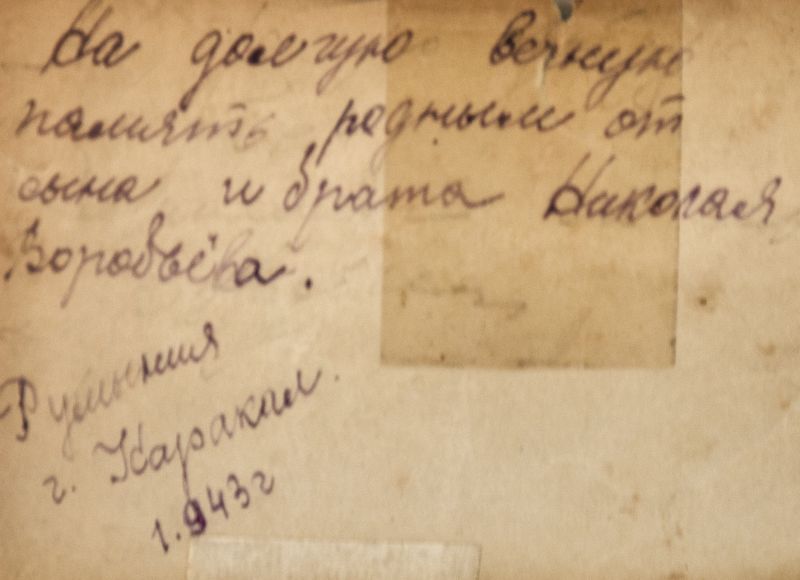 На долгую вечную
память родным от
сына и брата Николая
Воробьёва.
Румыния
г. Каракал.
1.943г